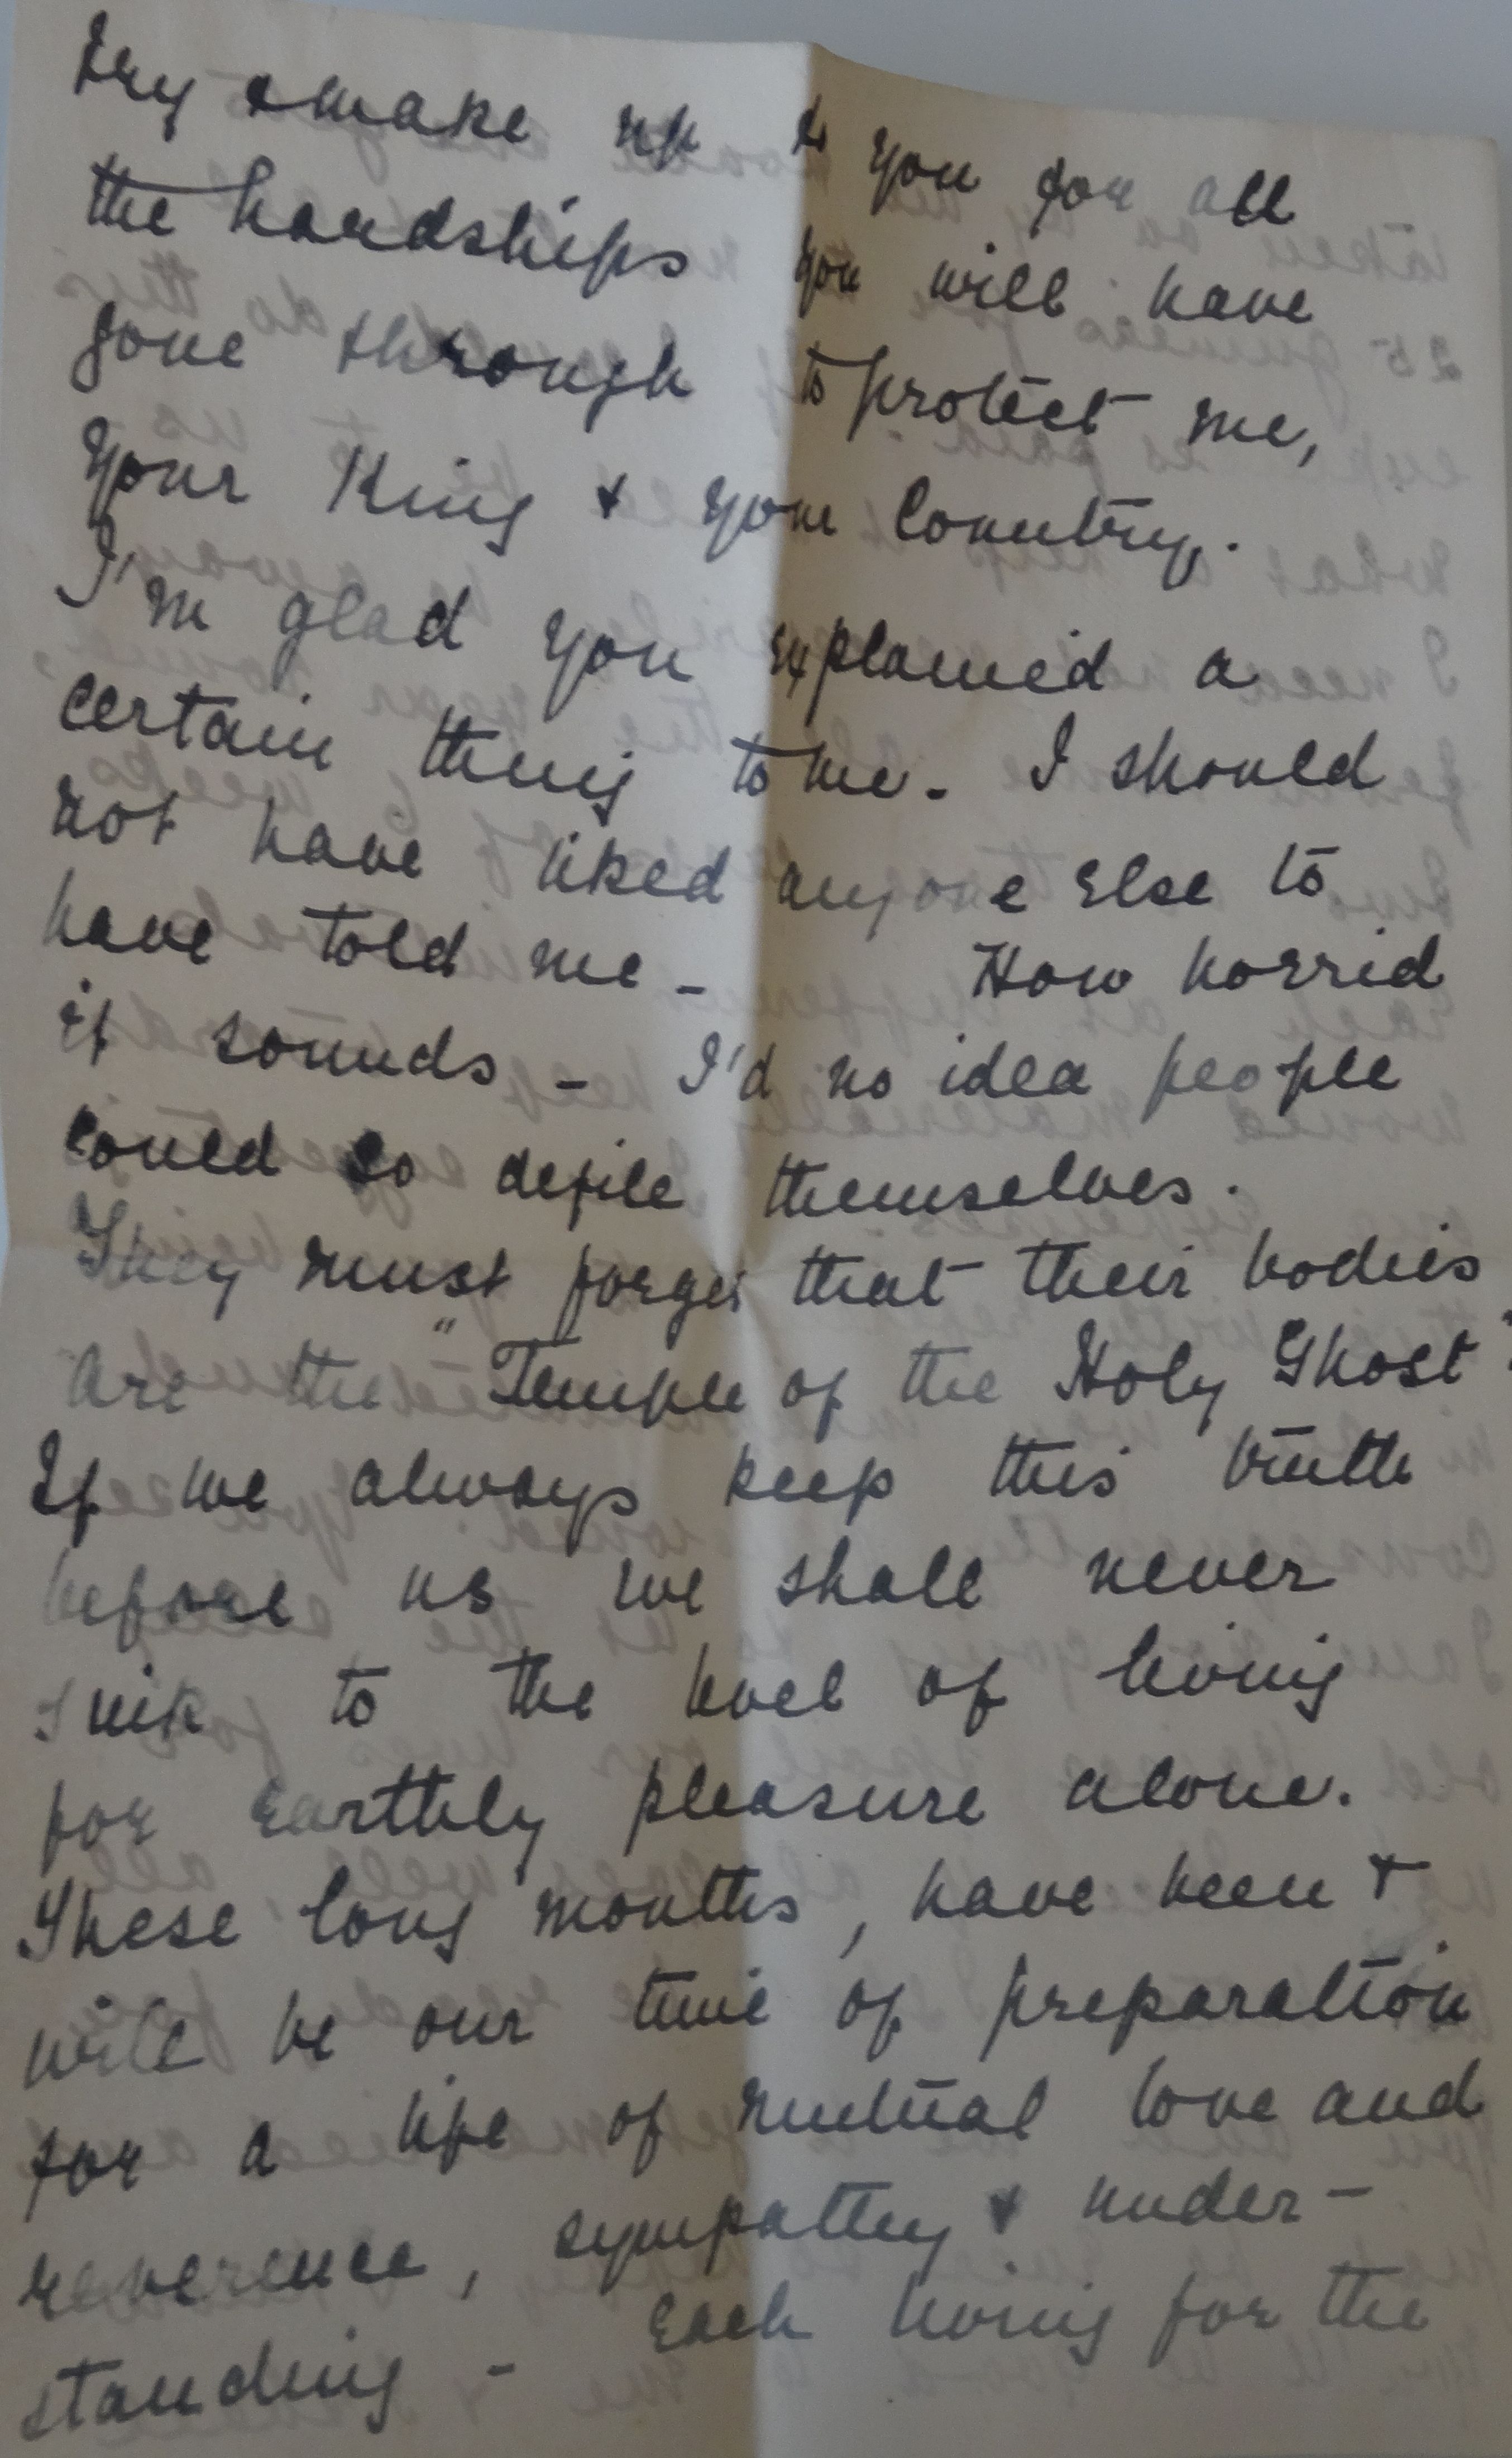 try & make up to you for all
the hardships you will have
gone through to protect me,
your King & your Country.
I'm glad you explained a
certain thing to me. I should
not have liked anyone else to
have told me - How horrid
it sounds - I'd no idea people
could so defile themselves.
They must forget that their bodies
are the "Temple of the Holy Ghost"
If we always keep this truth
before us we shall never
sink to the level of living
for earthly pleasure alone.
These long months, have been &
will be our time of preparation
for a life of mutual love and
reverence, sympathy & under-
standing - Each living for the